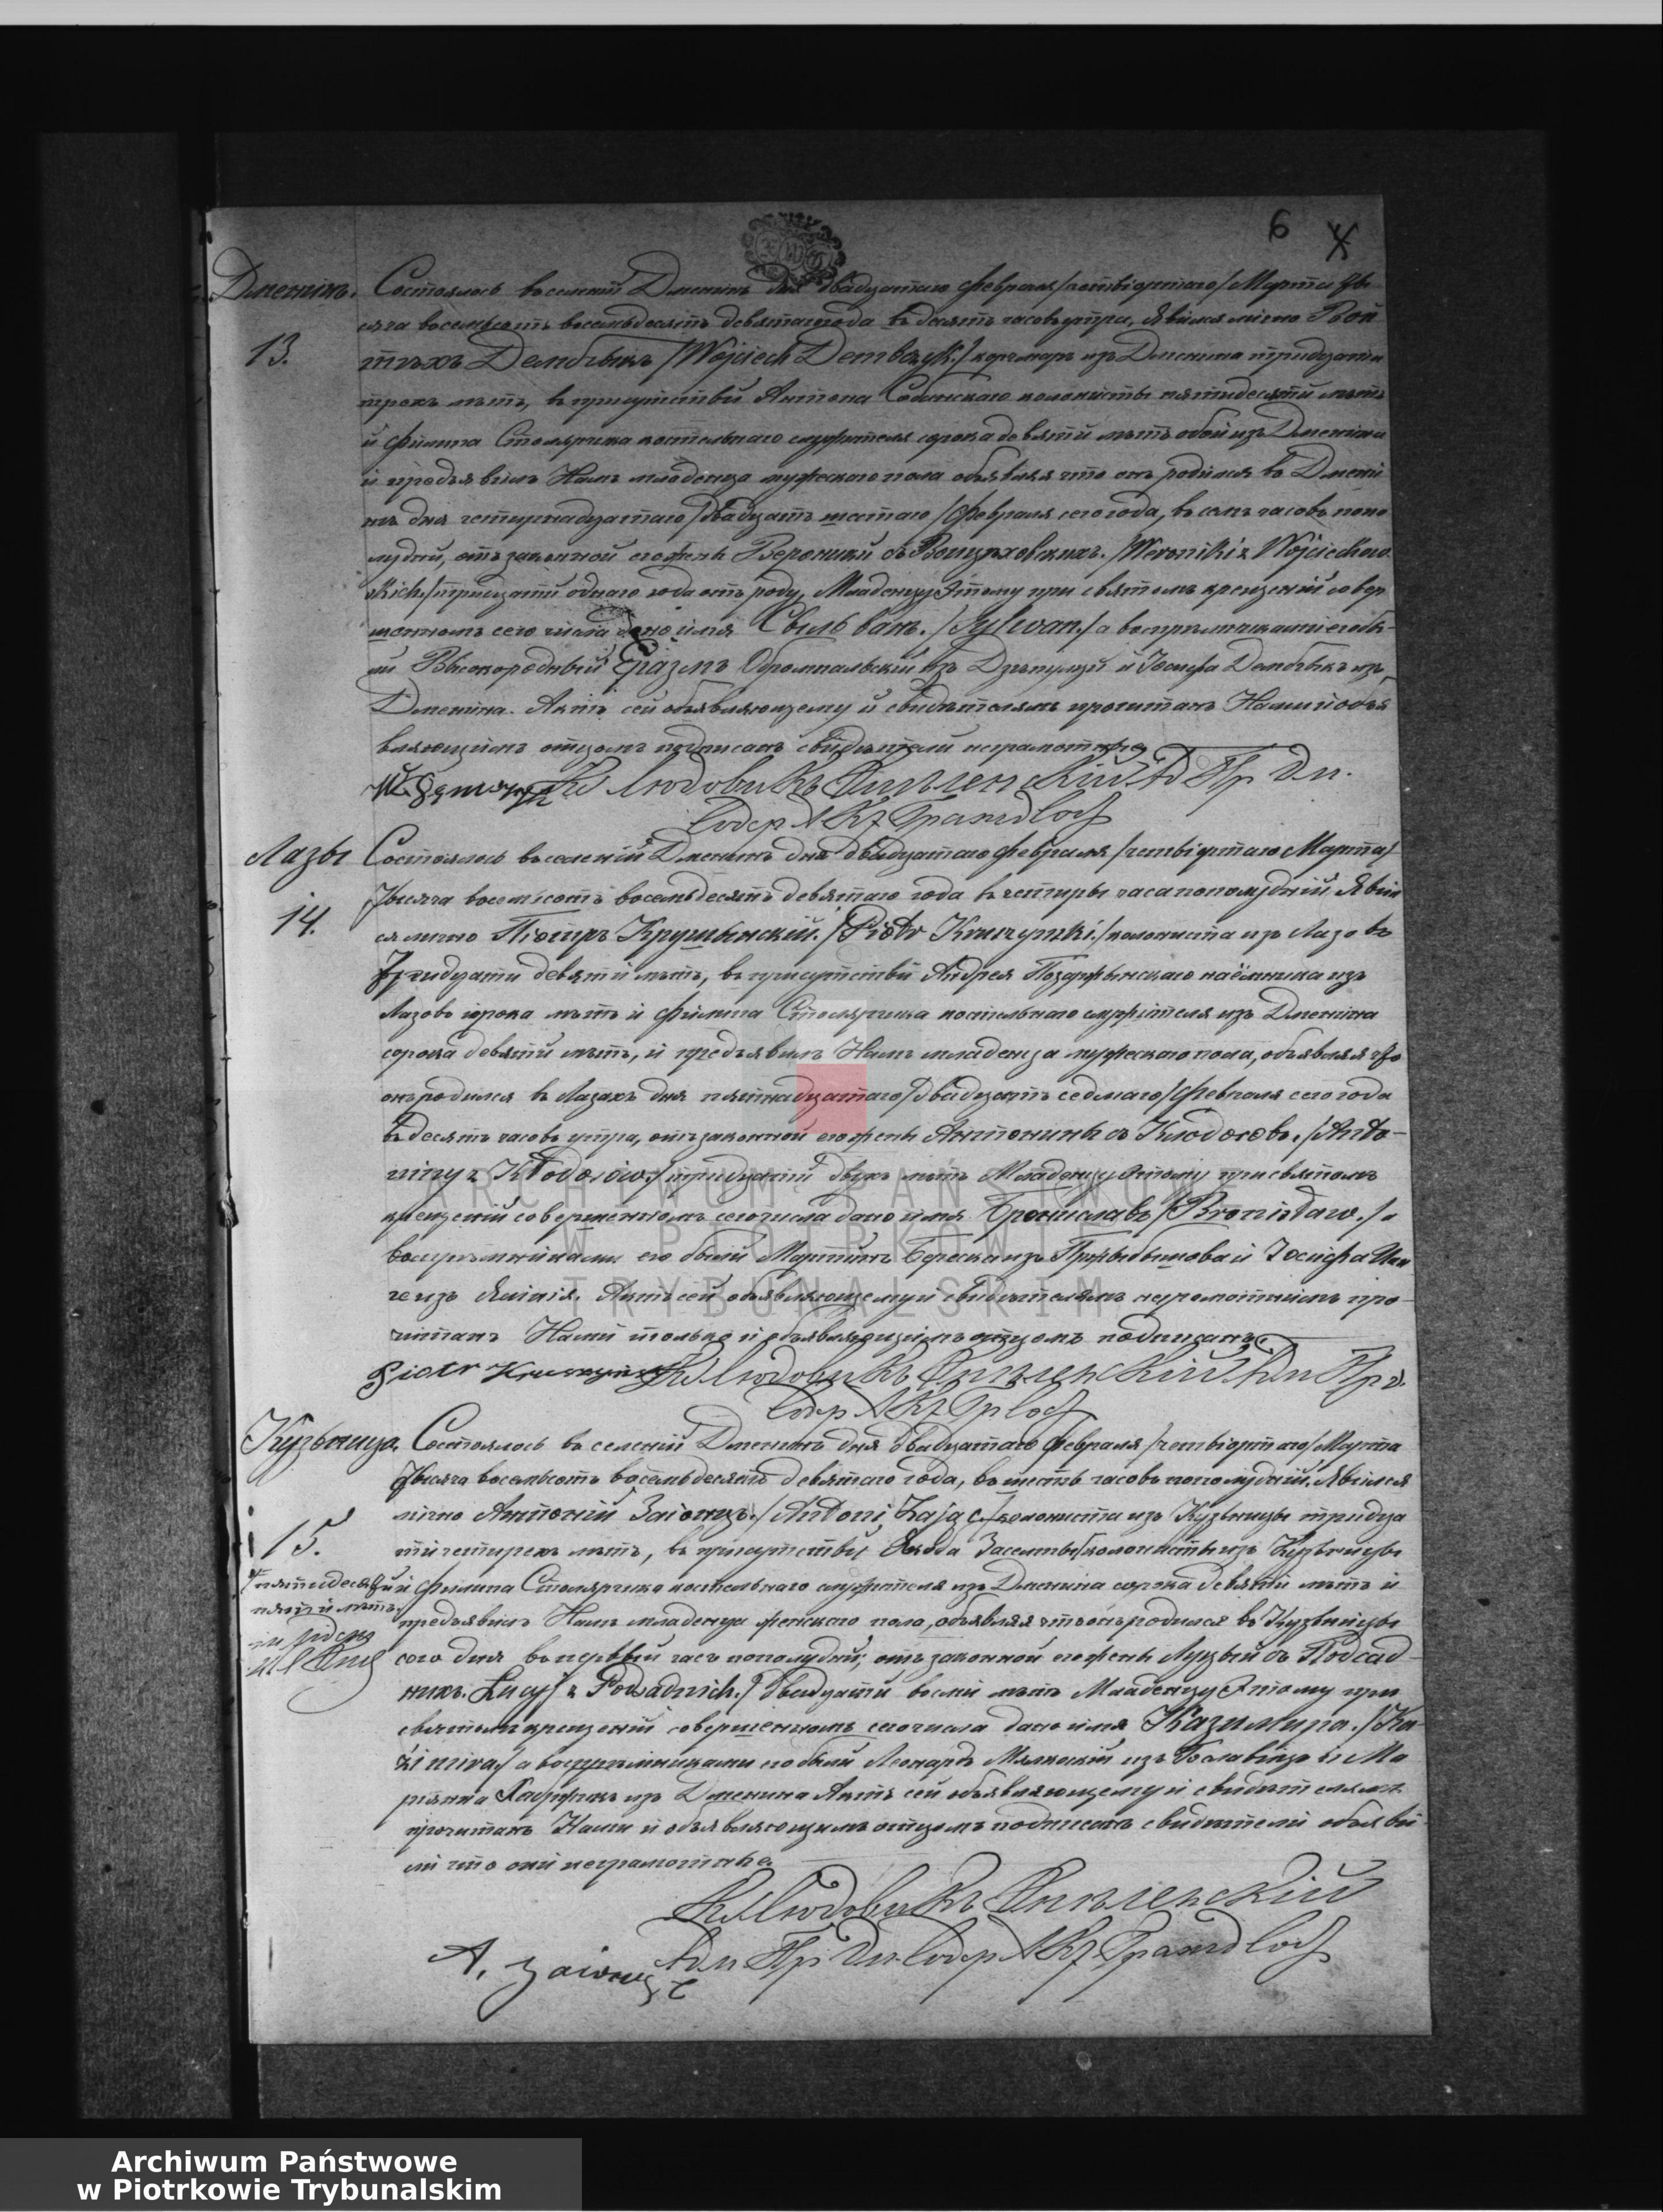 6
Дменинъ.
13.
Состоялось въ селеніи Дменинъ дня двадцатаго Февраля /четвіортаго/ Марта Ты
сяча восемьсотъ восемьдесятъ девятаго года въ десять часовъ утра, Явился лично Вой
тѣхъ Дембчыкъ /Wojciech Dembczyk./ изъ Дменина тридцати
трехъ лѣтъ, въ присутствіи Антона колонисты пятидесяти лѣтъ
и Филипа Столярчика костельнаго служителя сорока девяти лѣтъ обоихъ изъ Дменина
и предъявилъ Намъ младенца мужескаго пола объявляя что онъ родился въ Дмени
нѣ дня четырнадцатаго /двадцать шестаго/ Февраля сего года, въ семь часовъ попо
лудни, отъ законной его жены Вероники съ Войцѣховскихъ. /Weroniki z Wojciechow
skich/ тридцати одного года отъ роду, Младенцу Этому при святомъ крещеніи совер
шенномъ сего числа дано имя Сыльванъ. /Sylwan./ а воспріемниками его бы-
ли Высокородный Еразмъ изъ и Іосифа Дембчыкъ изъ
Дменина. Актъ сей объявляющему и свидѣтелямъ прочитанъ Нами и объя
вляющимъ отцомъ подписанъ свидѣтели неграмотные
Кс Людовикъ
Содер А Кт Гражд Сос
Лазы
14.
Состоялось въ селеніи Дменинъ дня двадцатаго Февраля /четвіортаго Марта/
Тысяча восемьсотъ восемьдесятъ девятаго года въ четыры часа пополудній Явил
ся лично Піотръ Крушынскій. /Piotr Kruszynski./ колониста изъ Лазовъ
Тридцати девяти лѣтъ, въ присутствіи Андрея наёмника изъ
Лазовъ сорока лѣтъ и Филипа Столярчика костельнаго служителя изъ Дменина
сорока девяти лѣтъ, и предъявилъ Намъ младенца мужескаго пола, объявляя что
онъ родился въ Лазахъ дня пятнадцатаго /двадцать седмаго/ Февраля сего года
въ десять часовъ утра, отъ законной его жены Антонины съ Клодосовъ. /Anto-
niny z Kłodosów./ тридцати двухъ лѣтъ Младенцу Этому при святомъ
крещеніи совершенномъ сего числа дано имя Брониславъ /Bronisław./ а
воспріемниками его были Мартинъ изъ и Іосифа
изъ Актъ сей объявляющему и свидѣтелямъ неграмотнымъ про-
читанъ Нами только и объявляющимъ отцомъ подписанъ.
Piotr Kruszynski Кс Людовикъ
Содер А Кт Гр Сос
Кузьница.
15.
пятидесяти
пяти лѣтъ.
Состоялось въ селеніи Дменинъ дня двадцатаго Февраля /четвіортаго/ Марта
Тысяча восемьсотъ восемьдесятъ девятаго года, въ шесть часовъ пополудній. Явился
лично Антоній Заіонцъ. /Antoni Zając/ колониста изъ Кузьницы тридца
ти четырехъ лѣтъ, въ присутствіи колонисты изъ Кузьницы
и Филипа Столярчика костельнаго служителя изъ Дменина сорока девяти лѣтъ и
предъявилъ Намъ младенца женскаго пола, объявляя что онъ родился въ Кузьницы
сего дня въ первый часъ пополудни, отъ законной его жены Луцыи съ Подсад
нихъ. Lucyi z Podsadnich./ двадцати восьми лѣтъ Младенцу Этому при
святомъ крещеніи совершенномъ сего числа дано имя Казимира. /Ka-
zimira/ а воспріемниками его были Леонардъ изъ и Ма
ріанна изъ Дменина Актъ сей объявляющему и свидѣтелямъ
прочитанъ Нами и объявляющимъ отцомъ подписанъ свидѣтели объяви
ли что они неграмотные.
Кс Людовикъ
Содер А Кт Гражд Сос
А. Заіонцъ
ARCHIWUM PAŃSTWOWE
W PIOTRKOWIE
TRYBUNALSKIM
Archiwum Państwowe
w Piotrkowie Trybunalskim